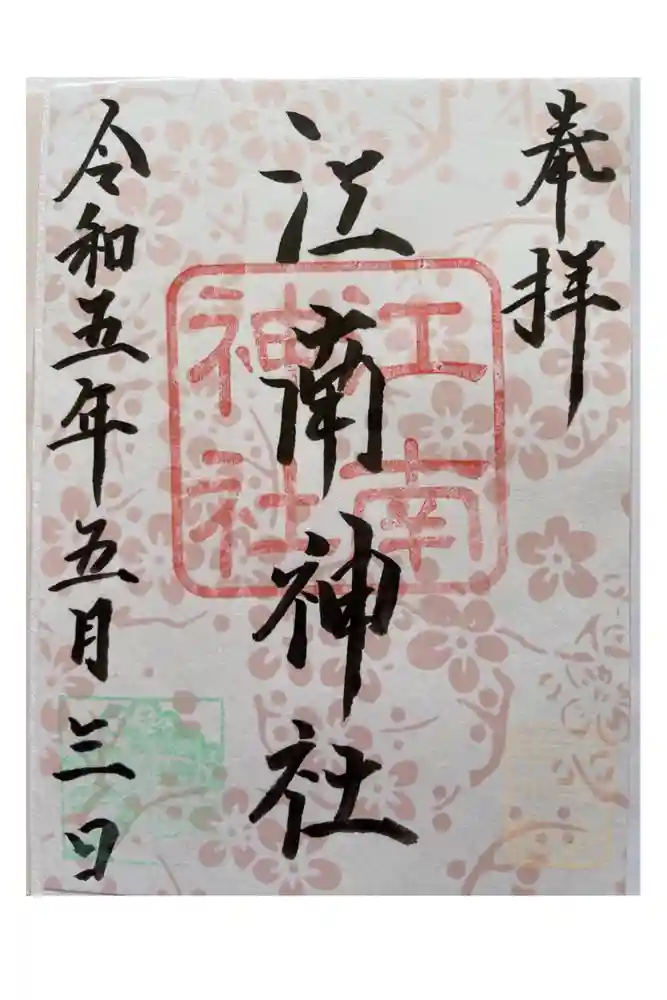 奉拝
江南神社
江南
神社
令和五年五月三日